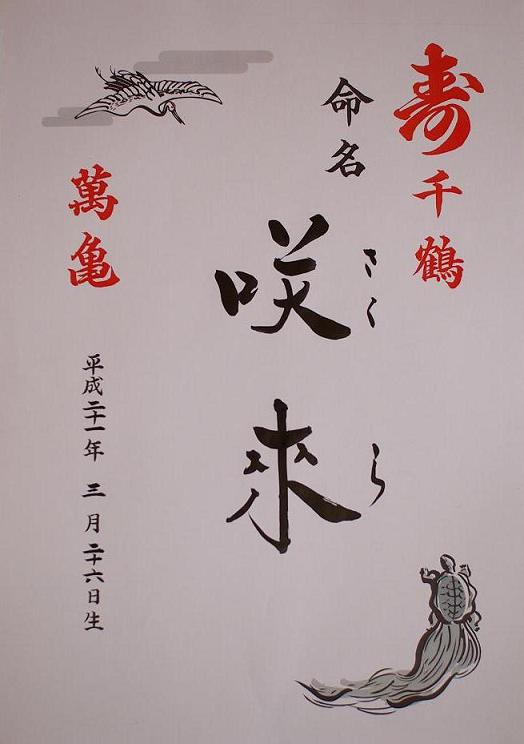 寿
千鶴
命名
さくら
咲來
萬亀
平成二十一年 三月二十六日生